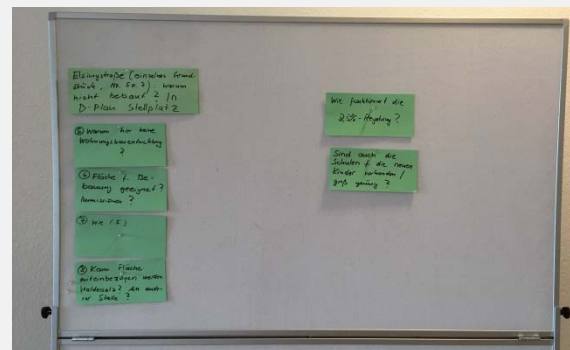 Elsingstraße (einzelnes Grund-
stück, Nr. 5 o. 7) warum
nicht bebaut? In
D-Plan Stellplatz
⑤ Warum hier keine
Wohnungsbauentwicklung
?
Fläche f. Be-
bauung geeignet?
Immissionen?
Wie (5)
⑧ Kann Fläche
miteinbezogen werden
Waldersatz? An
Stelle?
Wie funktioniert die
-Regelung?
Sind auch die
Schulen f. die neuen
Kinder vorhanden /
groß genug?